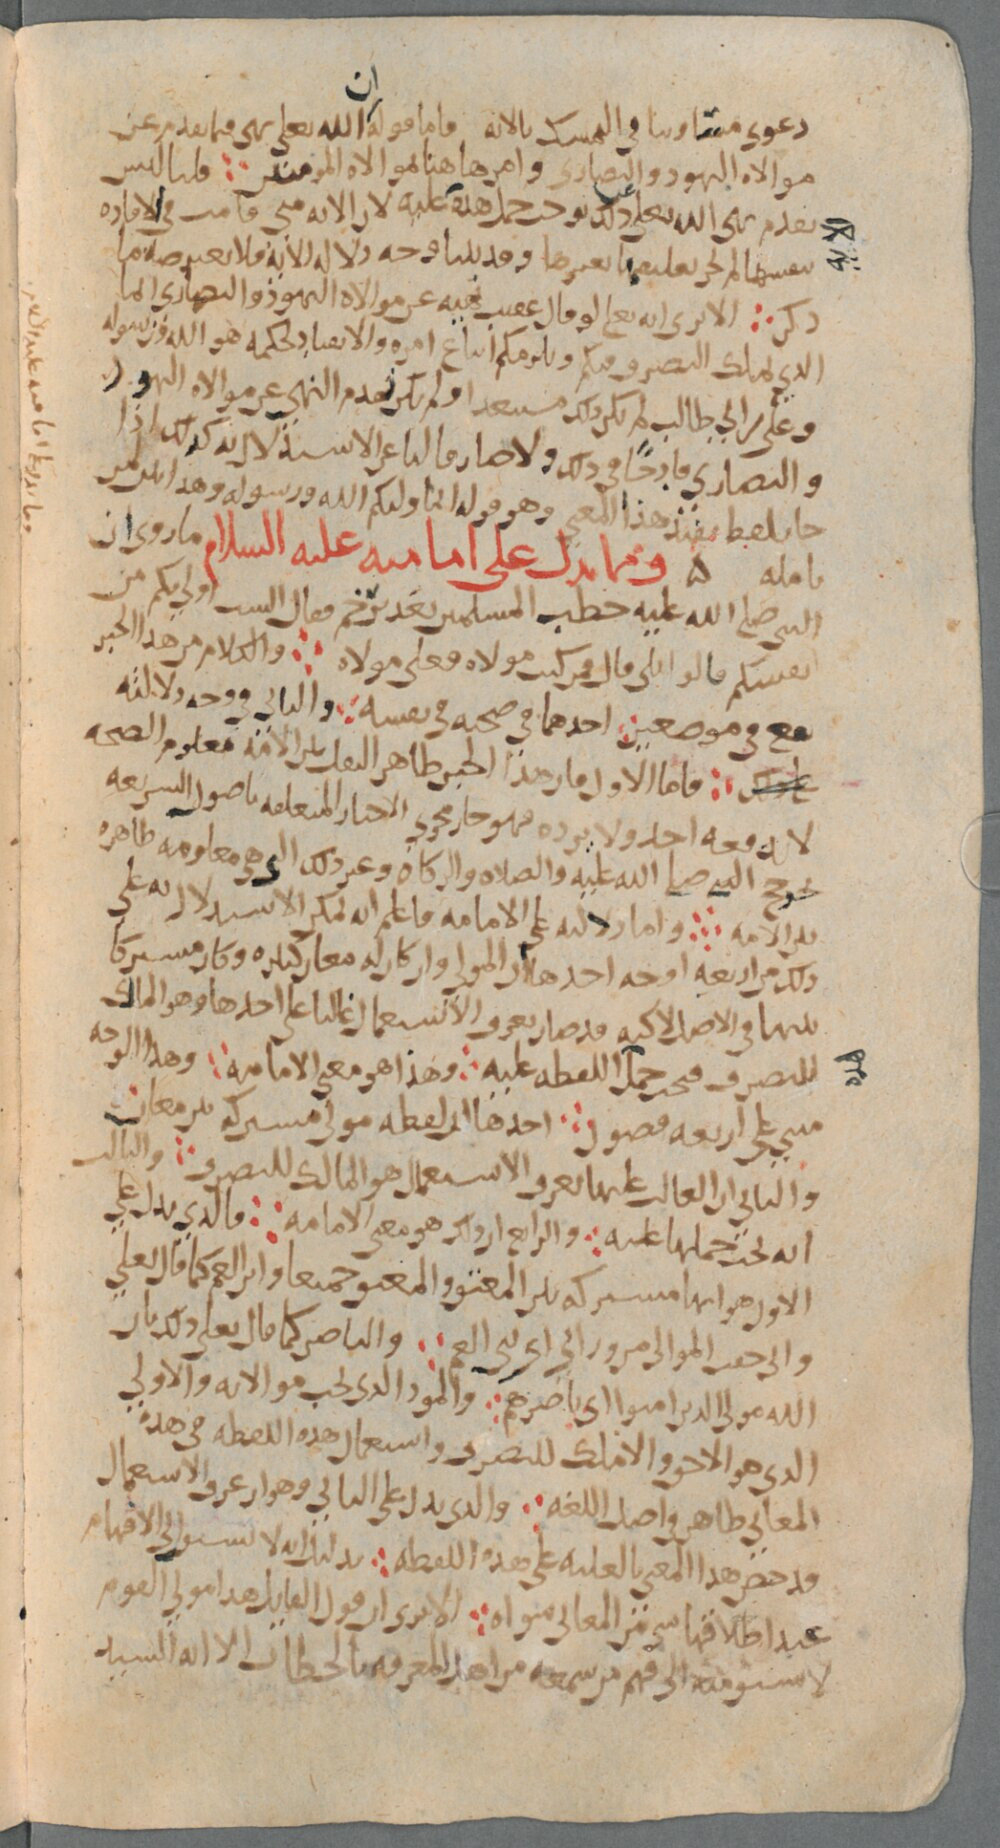 دعوى متساوينا في التمسك بالآية فاما قوله ان الله تعالى نهى فيما تقدم عن
موالاة اليهود والنصارى وامر هاهنا بموالاة المؤمنين ⁘ قلنا ليس
تقدم نهى الله تعالى عن ذلك يوجب حمل هذه عليه لان الآية متى قامت في الافادة
بنفسها لم يجز تعليقها بغيرها وقد بينا وجه دلالة الآية فلا يعترضه ما
ذكر ⁘ الا ترى انه تعالى لو قال عقيب نهيه عن موالاة اليهود والنصارى انما
الذي يملك التصرف فيكم ويلزمكم اتباع امره والانقياد لحكمه هو الله ورسوله
وعلي بن ابي طالب لم يكن ذلك مستبعدا ولم يكن تقدم النهي عن موالاة اليهود
والنصارى قادحًا في ذلك ولا صارفا لنا عن الاستدلال به كذلك اذا
جاء بلفظ يفيد هذا المعنى وهو قوله انما وليكم الله ورسوله وهذا بين لمن
تامله ۵ ومما يدل على امامته عليه السلام ما روي ان
النبي صلى الله عليه خطب المسلمين بغدير خم فقال الست اولى بكم من
انفسكم قالوا بلى قال فمن كنت مولاه فعلي مولاه ⁘ والكلام من هذا الخبر
يقع في موضعين احدهما في صحته في نفسه ⁘ والثاني في وجه دلالته
على ذلك ⁘ فاما الاول فان هذا الخبر ظاهر النقل بين الامة معلوم الصحة
لا يدفعه احد ولا يرده فهو جار مجرى الاخبار المتعلقة باصول الشريعة
نحو حج النبي صلى الله عليه والصلاة والزكاة وغير ذلك التي هي معلومة ظاهرة
بين الامة ⁘ واما دلالته على الامامة فاعلم انه يمكن الاستدلال به على
ذلك من اربعة اوجه احدها ان المولى وان كان له معان كثيرة وكان مشتركا
بينها في الاصل لاكنه قد صار بعرف الاستعمال غالبا على احدها وهو المالك
للتصرف فيجب حمل اللفظة عليه ⁘ وهذا هو معنى الامامة ⁘ وهذا الوجه
مبني على اربعة فصول ⁘ احدها ان لفظة مولى مشتركة بين معان
والثاني ان الغالب عليها بعرف الاستعمال هو المالك للتصرف ⁘ والثالث
انه يجب حملها عليه ⁘ والرابع ان ذلك هو معنى الامامة ⁘ فالذي يدل على
الاول هو انها مشتركة بين المعتق والمعتق جميعا وابن العم كما قال تعالى
واني خفت الموالي من ورائي اي بني العم ⁘ والناصر كما قال تعالى ذلك بان
الله مولى الذين امنوا اي ناصرهم ⁘ والمود الذي تجب موالاته والاولى
الذي هو الاحق والاملك للتصرف واستعمال هذه اللفظة في هذه
المعاني ظاهر في اصل اللغة ⁘ والذي يدل على الثاني وهو ان عرف الاستعمال
قد خص هذا المعنى بالغلبة على هذه اللفظة ⁘ بدليل انه لا يسبق الى الافهام
عند اطلاقها شي من المعاني سواه ⁘ الا ترى ان قول القايل هذا مولى القوم
لا يسبق منه الى فهم من سمعه من اهل المعرفة بالخطاب الا انه السيد
ومما يدل على امامته عليه السلام